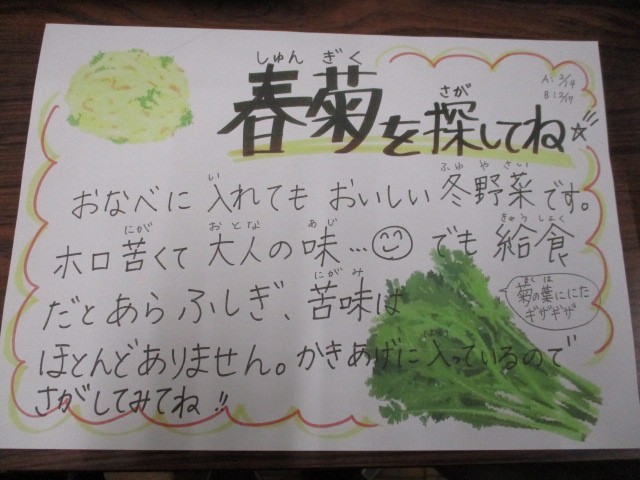 春菊を探してね☆
しゅん ぎく
さが
A：2/14
B：2/17
おなべに入れてもおいしい冬野菜です。
い
ふゆ や さい
ホロ苦くて大人の味…でも給食
にが
おとな
あじ
きゅう しょく
だとあらふしぎ、苦味は
にがみ
ほとんどありません。かきあげに入っているので
さがしてみてね!!
菊の葉ににた
きく
は
ギザギザ